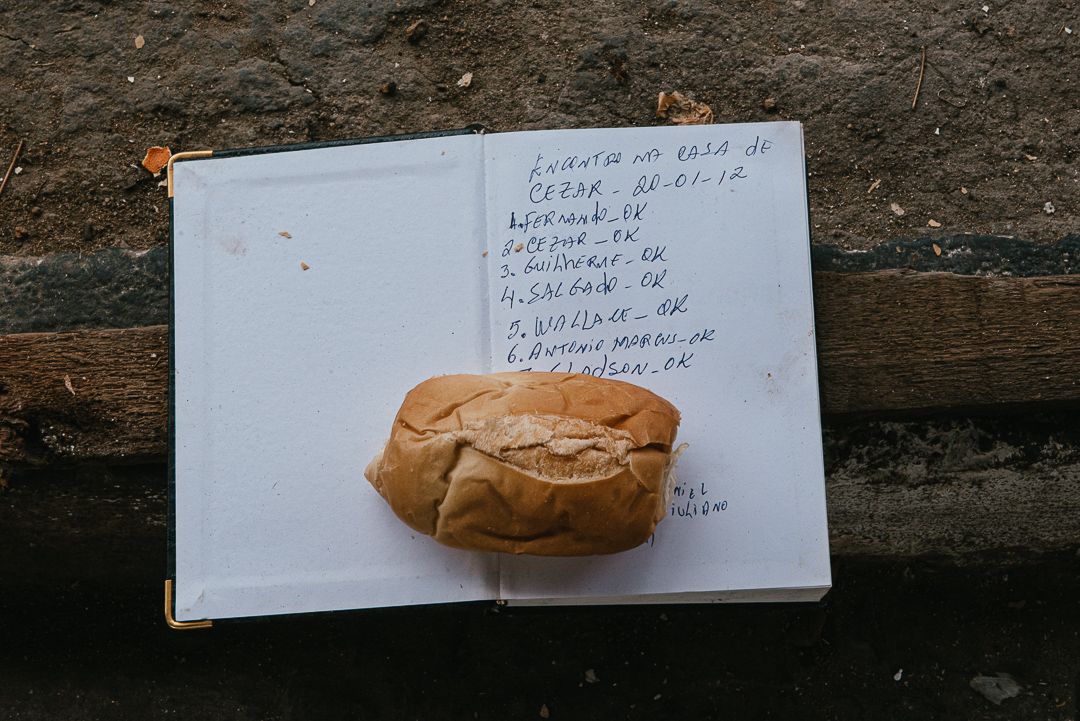 ENCONTRO NA CASA de
CEZAR - 20-01-12
1. FERNANdO_OK
2. CEZAR _OK
3. GUilhERME_OK
4. SALGAdO_OK
5. WALLACE_ OK
6. ANTONIO MARCUS_OK
AdSON_OK
NiEL
iULIANO